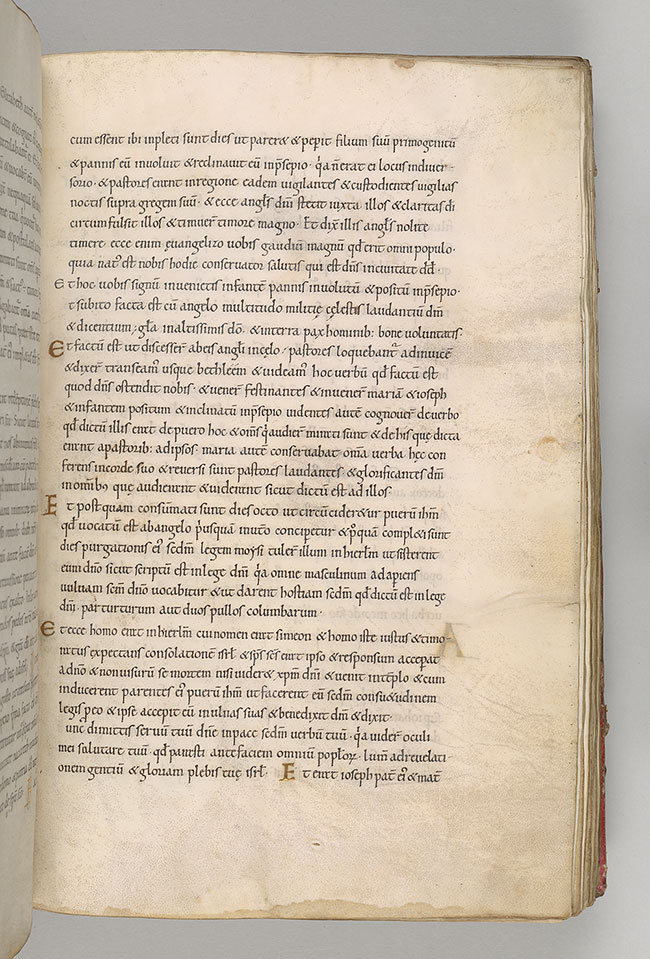 cum essent ibi inpleti sunt dies ut parer& & pepit filium suū primogenitū
& pannis eū involuit & reclinavit eū inp̄sepio · q̇a ñ erat ei locus indiver-
sorio · & pastores erant in regione eadem vigilantes & custodientes vigilias
noctis supra gregem suū · & ecce angl̄s dn̄i stetit iuxta illos & claritas dī
circumfulsit illos & timuer̄ timore magno · Et dix̄ illis angl̄s nolite
timere ecce enim ęvangelizo vobis gaudiū magnū qd̄ erit omni populo ·
quia nat᾽ est nobis hodie conservator salutis qui est dn̄s in civitate dd̄ ·
Et hoc vobis signū invenietis infantē pannis involutū & positū inp̄sepio ·
t subito facta est cū angelo multitudo militię cęlestis laudantiū dm̄
& dicentium · gl̄a in altissimis dō · & in terra pax hominib: bonę voluntatis ·
Et factū est ut discesser̄ ab eis angli in cęlo / pastores loquebant᷑ adinvicē
& dixer̄ transeam᾽ usque bethleēm & videam᾽ hoc verbū qd̄ factū est
quod dn̄s ostendit nobis · & vener̄ festinantes & invener̄ mariā & ioseph
& infantem positum & inclinatū inp̄sepio videntes autē cognover̄ de verbo
qd̄ dictū illis erat de puero hoc & om̄s q̇ audier̄ mirati sunt & de his quę dicta
erant a pastorib: ad ipsos · maria autē conservabat om̄a verba hęc con
ferens in corde suo & reversi sunt pastores laudantes & glorificantes dm̄
in om̄ib᾽ quę audierant & viderant sicut dictū est ad illos ·
Et postquam consumati sunt dies octo ut circūcideretur puerū ihm̄
qd̄ vocatū est ab angelo ṗusquā in utō conciperetur & p᾽quā complęti sunt
dies purgationis ei᾽ secdm̄ legem moysi tuler̄ illum in hierlm̄ ut sisterent
eum dn̄o sicut scriptū est in lege dn̄i q̇a omne masculinum adapiens
vulvam sc̄m dn̄o vocabitur & ut darent hostiam secdm̄ qd̄ dictū est in lege
dn̄i · par turturum aut duos pullos columbarum ·
Et ecce homo erat in hierlm̄ cui nomen erat simeon & homo iste iustus & timo-
ratus expectans consolationē isrl̄ & sp̄s sc̄s erat in ipso & responsum acceperat
a dn̄o & non visurū se mortem nisi videre xp̄m dn̄i & venit in tēplo & cum
inducerent parentes ei᾽ puerū ihm̄ ut facerent eū secdm̄ consuetudinem
legis p eo & ipse accepit eū in ulnas suas & benedixit dm̄ & dixit ·
unc dimittis servū tuū dn̄e in pace secdm̄ verbū tuū · q̇a vider̄ oculi
mei salutare tuū · qd̄ parasti ante faciem omniū popl̄oꝝ · lum̄ ad revelati-
onem gentiū & gloriam plebis tuę isrl̄ · Et erat ioseph pat̄ ei᾽ & mat̄
A